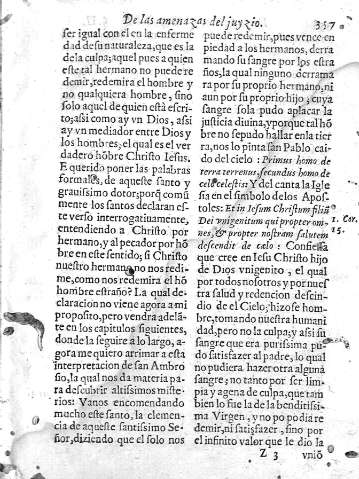 De las amenazas del juyzio. 357
ser igual con el en la enferme
dad de su naturaleza, que es la
de la culpa; aquel pues a quien
este tal hermano no puede re
demir, redemira el hombre y
no qualquiera hombre, sino
solo aquel de quien està escri-
to; assi como ay vn Dios, assi
ay vn mediador entre Dios y
los hombres; el qual es el ver
dadero hõbre Christo Iesus.
E querido poner las palabras
formales, de aqueste santo y
grauissimo dotor; porq̃ comũ
mente los santos declaran es-
te verso interrogatiuamente,
entendiendo a Christo por
hermano, y al pecador por hõ
bre en este sentido; si Christo
nuestro hermano no nos redi-
me, como nos redemira el hõ
hombre estraño? La qual de-
claracion no viene agora a mi
proposito, pero vendra adelã-
te en los capitulos siguientes,
donde la seguire a lo largo, a-
gora me quiero arrimar a esta
interpretacion de san Ambro
sio, la qual nos da materia pa-
ra descubrir altissimos miste-
rios Vanos encomendando
mucho este santo, la clemen-
cia de aqueste santissimo Se-
ñor, diziendo que el solo nos
puede redemir, pues vence en
piedad a los hermanos, derra
mando su sangre por los estra
ños, la qual ninguno derrama
ra por su proprio hermano, ni
aun por su proprio hijo; cuya
sangre sola pudo aplacar la
justicia diuina, y porque tal hõ
bre no se pudo hallar en la tier
ra, nos lo pinta san Pablo cai-
do del cielo: Primus homo de
terra terrenus, secundus homo de
cælo cælestis: Y del canta la Igle
sia en el simbolo de los Apos-
toles: Et in Iesum Christum filiũ
Dei vnigenitum qui propter om-
nes, & propter nostram salutem
descendit de cælo: Confiessa
que cree en Iesu Christo hijo
de Dios vnigenito, el qual
por todos nosotros y por nues
tra salud y redencion descin-
dio de el Cielo; hizose hom-
bre, tomando nuestra humani
dad, pero no la culpa; y assi su
sangre que era purissima pu-
do satisfazer al padre, lo qual
no pudiera hazer otra alguna
sangre; no tanto por ser lim-
pia y agena de culpa, que tam
bien lo fue la de la benditissi-
ma Virgen, y no po podia re
demir, ni satisfazer, sino por
el infinito valor que le dio la
1. Cor.
15.
Z 3 vniõ